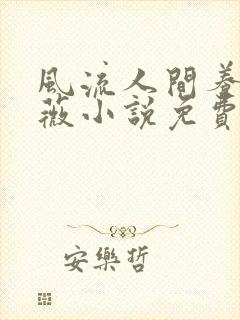 風流人間養
薇小說免費
安樂哲